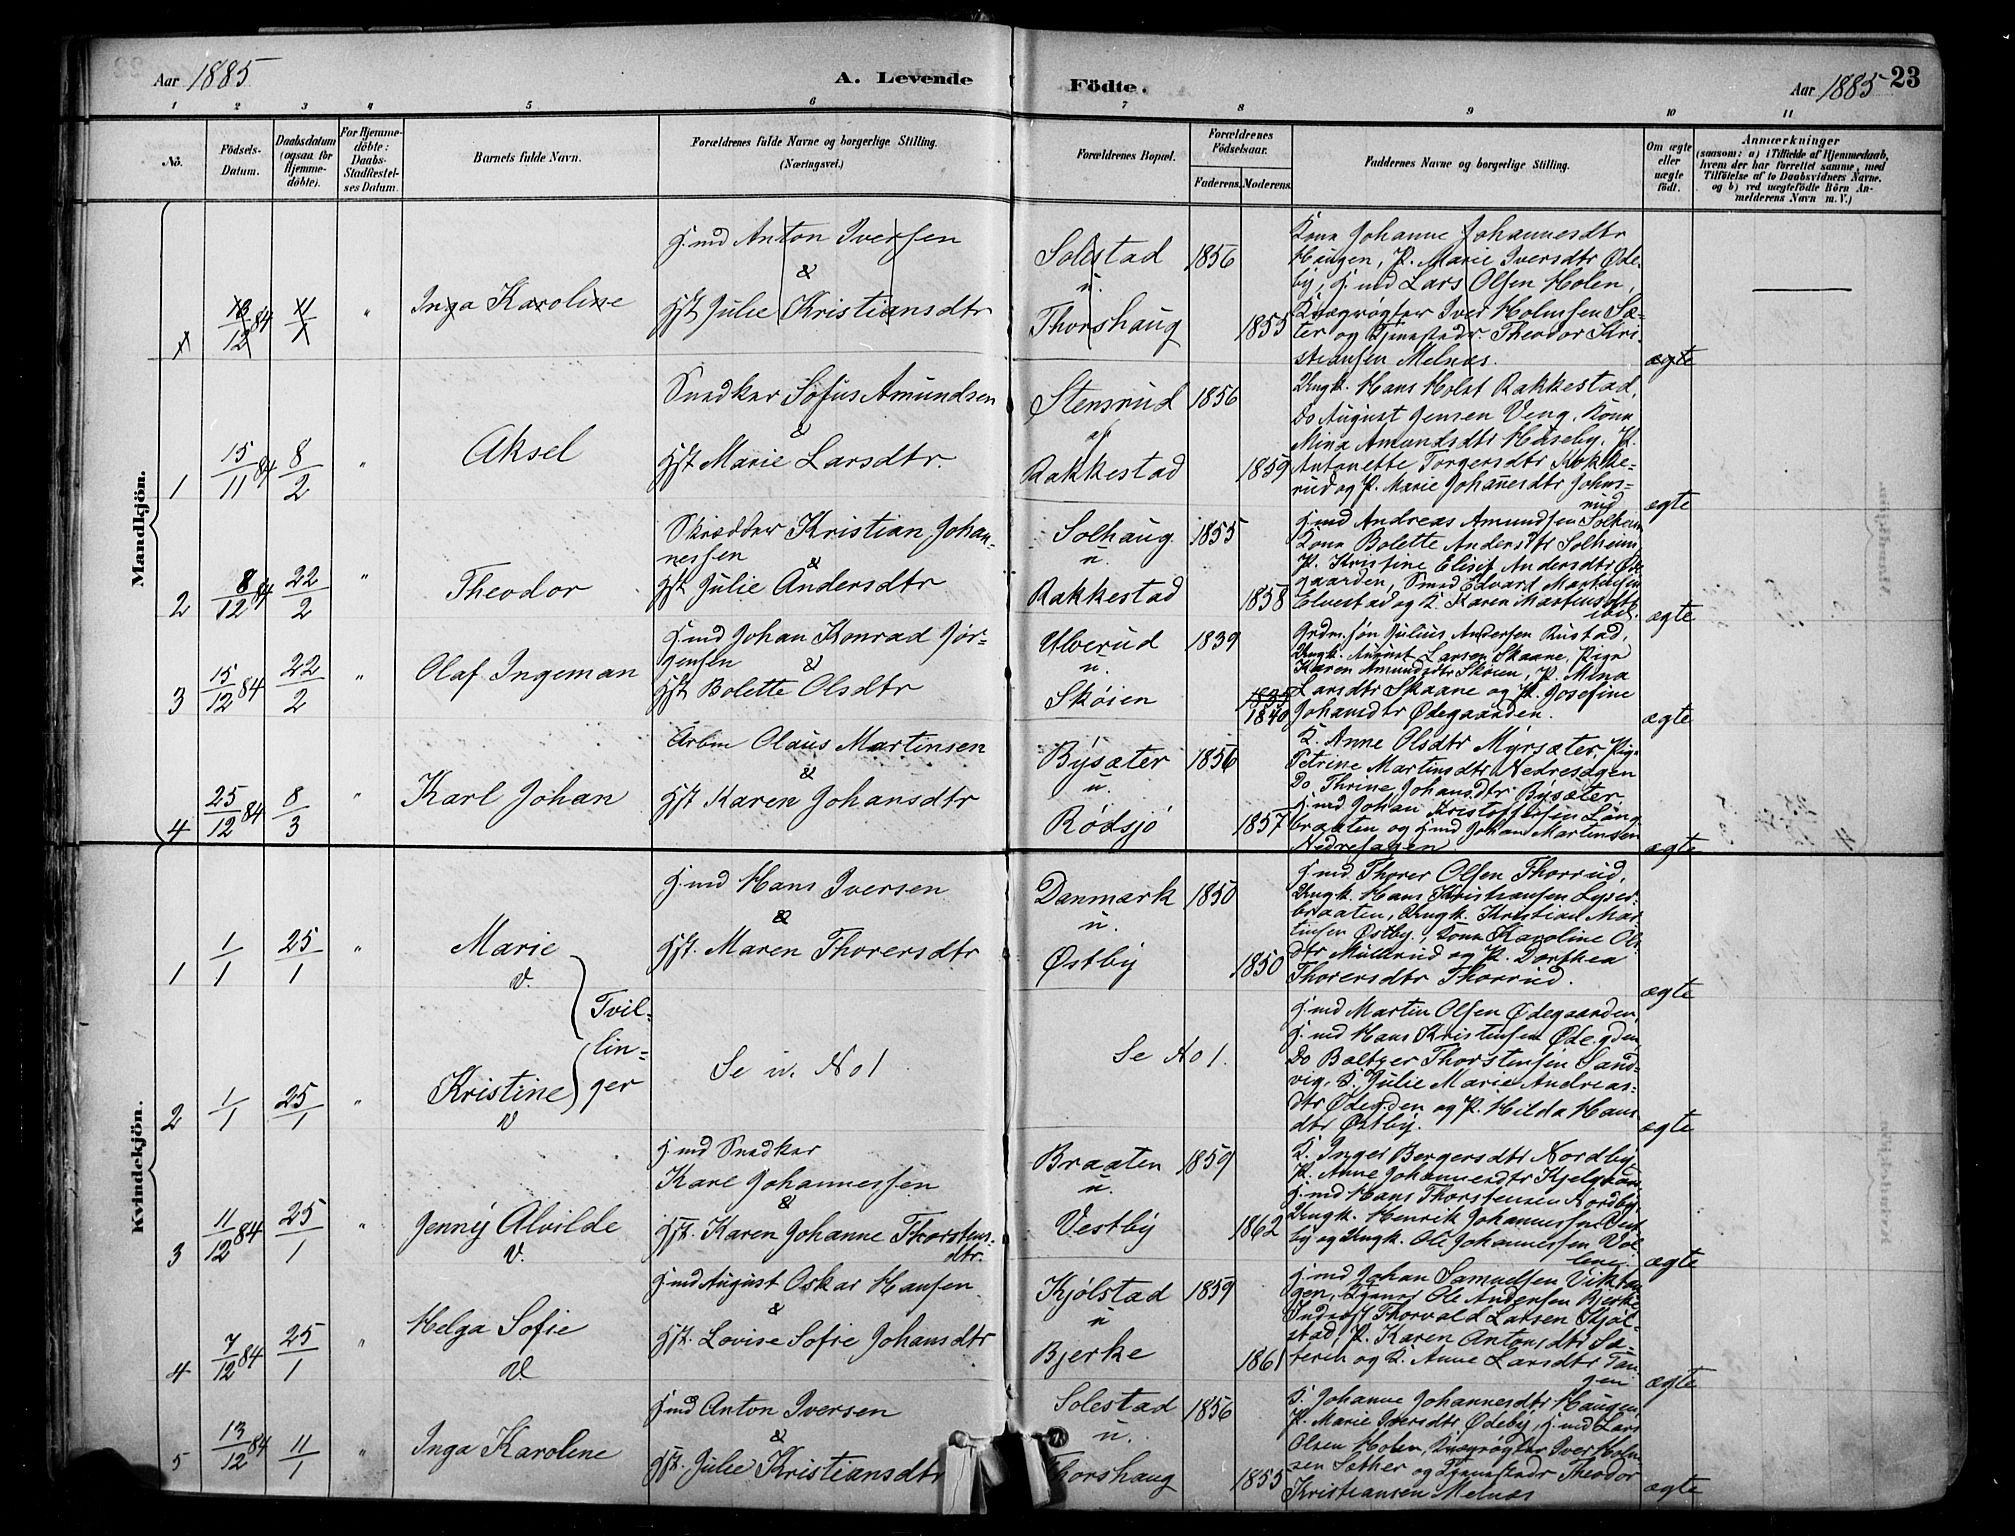 Aar 1885
A. Levende
Födte.
Aar 1885
23
1 2 3 4 5 6 7 8 9 10 11
No.
Födsels-
Datum.
Daabsdatum
(ogsaa for
Hjemme-
döbte).
For Hjemme-
döbte:
Daabs-
Stadfæstel-
ses Datum.
Barnets fulde Navn.
Forældrenes fulde Navne og borgerlige Stilling.
(Næringsvei.)
Forældrenes Bopæl.
Forældrenes
Födselsaar.
Faderens. Moderens.
Faddernes Navne og borgerlige Stilling.
Om ægte
eller
uægte
födt.
Anmærkninger
(saasom: a) i Tilfælde af Hjemmedaab,
hvem der har forrettet samme, med
Tilföielse af to Daabsvidners Navne.
og b) ved uægtefödte Börn An-
melderens Navn m. V.)
Mandkjön.
12 84
11
1
"
Inga Karoline
Gmd Anton Iversen
&
Hst Julie Kristiansdtr
Solestad
u.
Thorshaug
1856
1855
Kona Johanne Johannesdtr
Haugen, P. Marie Iversdtr Øde-
by, Gmd Lars Olsen Holen,
Kvægrøgter Iver Holmsen Sæ-
ter og Tjenestedr. Theodor Kri-
stiansen Melnæs.
ægte
1
15
11 84
8
2
"
Aksel
Snedker Sofus Amundsen
&
Hst Marie Larsdtr.
Stensrud
af
Rakkestad
1856
1859
Ungk. Hans Holst Rakkestad,
Do August Jensen Veng, Kona
Mina Amundsdtr Huseby, P.
Antonette Torgersdtr Kokke-
rud og P. Marie Johannesdtr Johns-
rud
ægte
2
8
12 84
22
2
"
Theodor
Skrædder Kristian Johan-
nessen
&
Hst Julie Andersdtr
Solhaug
u.
Rakkestad
1855
1858
Gmd Andreas Amundsen Solheim
Kona Bolette Andersdtr Solheim
P. Kristine Elisif Andersdtr Øde-
gaarden, Smed Edvard Martinsen
Elvestad og K. Karen Martensdtr
ibid.
ægte
3
15
12 84
22
2
"
Olaf Ingeman
Gmd Johan Konrad Jør-
gensen
&
Hst Bolette Olsdtr
Ulverud
u.
Skøien
1839
1835
1840
Grdm.søn Julius Andersen Rustad,
Ungk. August Larsen Skaane, Pige
Karen Amundsdtr Skøien, P. Mina
Larsdtr Skaane og P. Josefine
Johansdtr Ødegaarden.
ægte
4
25
12 84
8
3
"
Karl Johan
Arbm Olaus Martinsen
&
Hst Karen Johansdtr
Bysæter
u.
Rødsjø
1856
1857
K. Anne Olsdtr Myrsæter, Pig.
Petrine Martinsdtr Nedresagen
Do Thrine Johansdtr Bysæter
Gmd Johan Kristoffersen Lang-
braaten og Gmd Johan Martinsen
Nedresagen
ægte
Kvindekjön.
1
1
1
25
1
"
Marie
v.
Gmd Hans Iversen
&
Hst. Maren Thorersdtr
Danmark
u.
Østby
1850
1850
Gmd Thorer Olsen Thorrud,
Ungk. Hans Kristiansen Lyser-
braaten, Ungk. Kristian Mar-
tinsen Østby, Kona Karoline Ols-
dtr Mullerud og P. Dorthea
Thorersdtr Thorrud.
ægte
2
1
1
25
1
"
Kristine
v
Tvil-
lin-
ger
Se v. No 1
Se No 1.
Gmd Martin Olsen Ødegaarden,
Gmd Hans Kristensen Ødegden,
Do Baltzer Thorstensen Sand-
vig, K. Julie Marie Andreas-
dtr Ødegden og P. Hilda Hans-
dtr Østby.
ægte
3
11
12 84
25
1
"
Jenny Alvilde
v.
Gmd Snedker
Karl Johannessen
&
Hst. Karen Johanne Thorstens-
dtr.
Braaten
u.
Vestby
1859
1862
K. Inger Bergersdtr Nordby
P. Anne Johannesdtr
Gmd Hans Thorstensen Nordby,
Ungk. Henrik Johannessen Vest-
by og Ungk. Ole Johannessen
ægte
4
7
12 84
25
1
"
Helga Sofie
v.
Gmd August Oskar Hansen
&
Hst. Lovise Sofie Johansdtr
Kjølstad
u
Bjerke
1859
1861
Gmd Johan Samuelsen
Ole Andersen Bjerke
Thorvald Larsen Kjøl-
stad, P. Karen Antonsdtr Sæ-
teren og K. Anne Larsdtr Tan-
gen
ægte
5
13
12 84
11
1
"
Inga Karoline
Gmd Anton Iversen
&
Hst. Julie Kristiansdtr
Solestad
u.
Thorshaug
1856
1855
K. Johanne Johannesdtr Haugen,
P. Marie Iversdtr Ødeby, Gmd Lars
Olsen Holen, Kvægrøgter Iver Holm-
sen Sæther og Tjenestedr Theodor
Kristiansen Melnæs
ægte